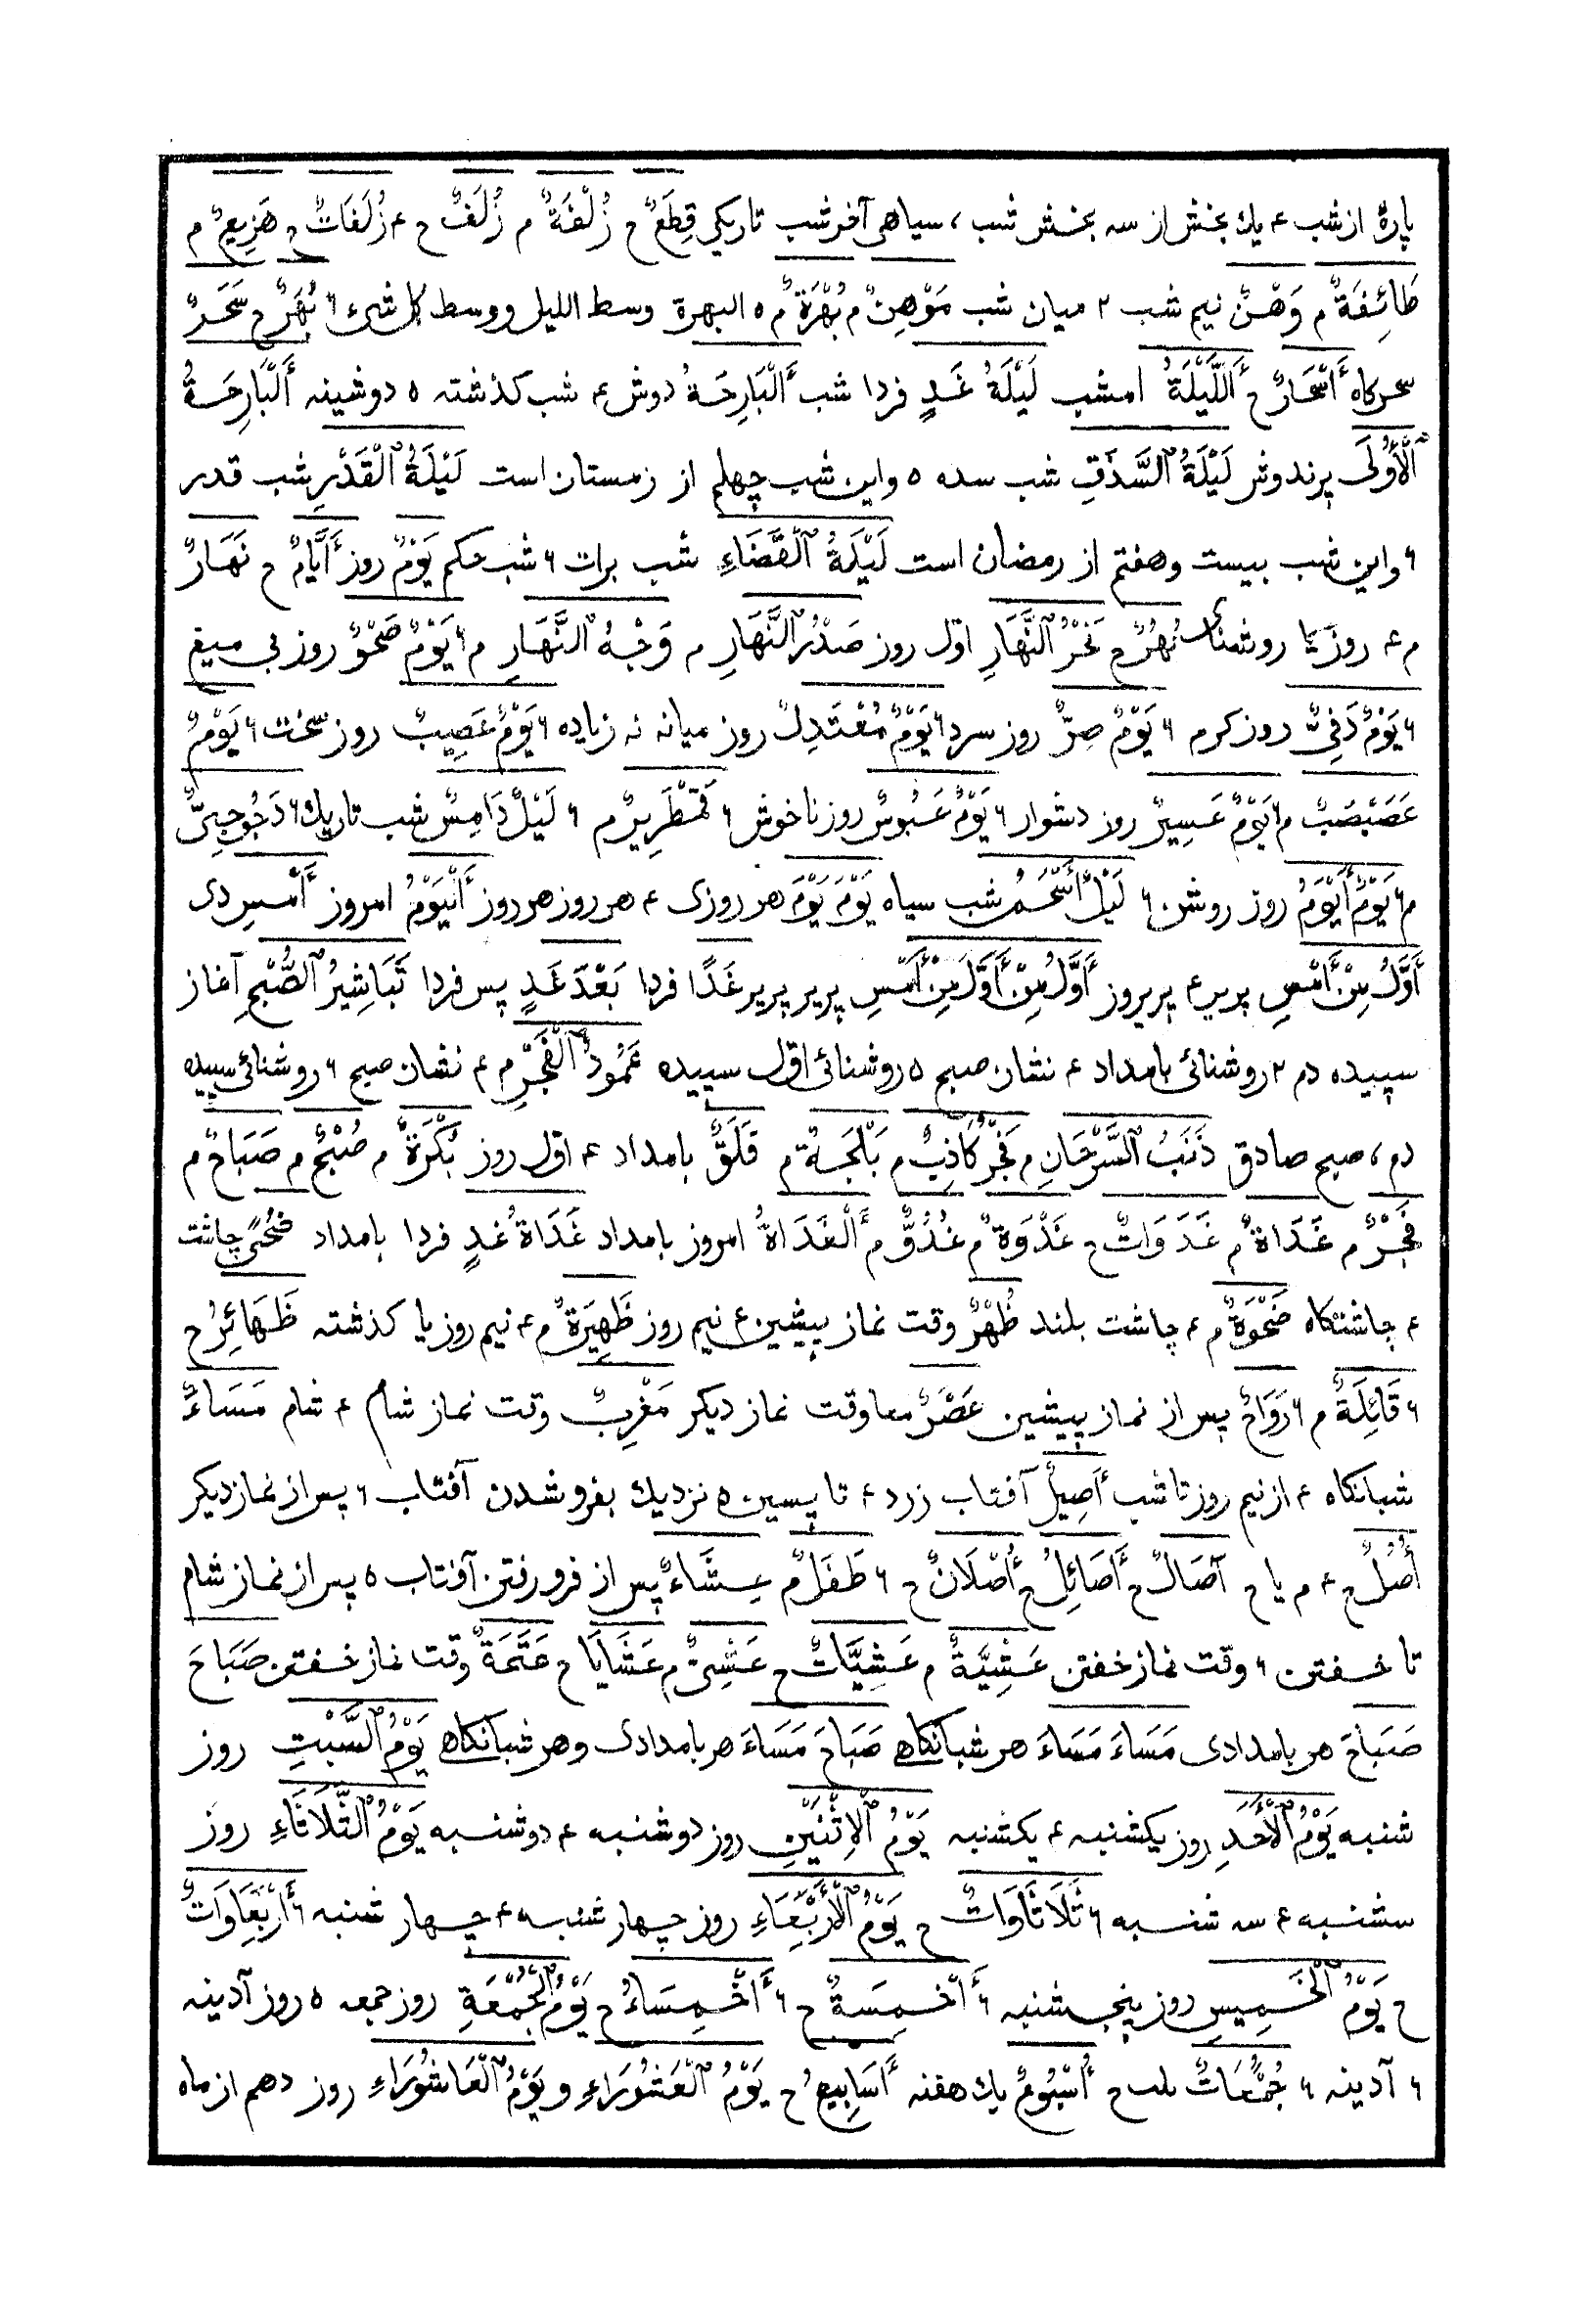 پارهٔ از شب ۴ یك بخش از سه بخش شب ، سیاهی آخر شب تاریکی قِطَعٌ ح زُلْفَةٌ م زُلَفٌ ح ۴ زُلَفَاتٌ ح هَزِیعٌ م
طَائِفَةٌ م وَهْنٌ نیم شب ۲ میان شب مَوْهِنٌ م بُهْرَةٌ م ۵ البهرة وسط اللیل و وسط کل شیء ۶ بُهَرٌ ح سَحَرٌ
سحرکاه أَسْحَارٌ ح أَللَّیْلَةُ امشب لَیْلَةُ غَدٍ فردا شب أَلْبَارِحَةُ دوش ۴ شب کذشته ۵ دوشینه أَلْبَارِحَةُ
ٱلْأُوْلَى پرندوش لَیْلَةُ ٱلسَّذَقِ شب سده ۵ واین شب چهلم از زمستان است لَیْلَةُ ٱلْقَدْرِ شب قدر
۶ واین شب بیست وهفتم از رمضان است لَیْلَةُ ٱلْقَضَاءِ شب برات ۶ شب حکم یَوْمٌ روز أَیَّامٌ ح نَهَارٌ
م ۴ روز یا روشنای نُهُرٌ ح نَحْرُ ٱلنَّهَارِ اوّل روز صَدْرُ ٱلنَّهَارِ م وَجْهُ ٱلنَّهَارِ م ۶ یَوْمٌ صَحْوٌ روز بی میغ
۶ یَوْمٌ دَفِیٌّ روز کرم ۶ یَوْمٌ صِرٌّ روز سرد ۶ یَوْمٌ مُعْتَدِلٌ روز میانه نه زیاده ۶ یَوْمٌ عَصِیبٌ روز سخت ۶ یَوْمٌ
عَصَبْصَبٌ م ۶ یَوْمٌ عَسِیرٌ روز دشوار ۶ یَوْمٌ عَبُوسٌ روز ناخوش ۶ قَمْطَرِیرٌ م ۶ لَیْلٌ دَامِسٌ شب تاریك ۶ دَجُوجِیٌّ
م ۶ یَوْمٌ أَیْوَمُ روز روشن ۶ لَیْلٌ أَسْحَمُ شب سیاه یَوْمَ یَوْمَ هر روزی ۴ هر روز هر روز أَلْیَوْمُ امروز أَمْسِ دی
أَوَّلُ مِنْ أَمْسِ پریر ۴ پریروز أَوَّلُ مِنْ أَوَّلَ مِنْ أَمْسِ پریر پریر غَدًا فردا بَعْدَ غَدٍ پس فردا تَبَاشِیرُ ٱلصُّبْحِ آغاز
سپیده دم ۲ روشنائی بامداد ۴ نشان صبح ۵ روشنائی اوّل سپیده عَمُودُ ٱلْفَجْرِ م ۴ نشان صبح ۶ روشنائی سپیده
دم ، صبح صادق ذَنَبُ ٱلسَّرْحَانِ م فَجْرٌ کَاذِبٌ م بَلْجَةٌ م فَلَقٌ بامداد ۴ اوّل روز بُکْرَةٌ م صُبْحٌ م صَبَاحٌ م
فَجْرٌ م غَدَاةٌ م غَدَوَاتٌ ح غَدْوَةٌ م غُدُوٌّ م أَلْغَدَاةُ امروز بامداد غَدَاةُ غَدٍ فردا بامداد ضُحًى چاشت
۴ چاشتکاه ضَحْوَةٌ م ۴ چاشت بلند ظُهْرٌ وقت نماز پیشین ۴ نیم روز ظَهِیرَةٌ م ۴ نیم روز یا کذشته ظَهَائِرُ ح
۶ قَائِلَةٌ م ۶ رَوَاحٌ پس از نماز پیشین عَصْرٌ معا وقت نماز دیکر مَغْرِبٌ وقت نماز شام ۴ شام مَسَاءٌ
شبانکاه ۴ از نیم روز تا شب أَصِیلٌ آفتاب زرد ۴ تا پسین ۵ نزدیك بفرو شدن آفتاب ۶ پس از نماز دیکر
أُصُلٌ ح ۴ م یا ح آصَالٌ ح أَصَائِلُ ح أُصْلَانٌ ح ۶ طَفَلٌ م عِشَاءٌ پس از فرو رفتن آفتاب ۵ پس از نماز شام
تا خفتن ۶ وقت نماز خفتن عَشِیَّةٌ م عَشِیَّاتٌ ح عَشِیٌّ م عَشَایَا ح عَتَمَةٌ وقت نماز خفتن صَبَاحَ
صَبَاحَ هر بامدادی مَسَاءَ مَسَاءَ هر شبانکاه صَبَاحَ مَسَاءَ هر بامدادی وهر شبانکاه یَوْمُ ٱلسَّبْتِ روز
شنبه یَوْمُ ٱلْأَحَدِ روز یکشنبه ۴ یکشنبه یَوْمُ ٱلْاِثْنَیْنِ روز دوشنبه ۴ دوشنبه یَوْمُ ٱلثَّلَاثَاءِ روز
سشنبه ۴ سه شنبه ۶ ثَلَاثَاوَاتٌ ح یَوْمُ ٱلْأَرْبِعَاءِ روز چهار شنبه ۴ چهار شنبه ۶ أَرْبِعَاوَاتٌ
ح یَوْمُ ٱلْخَمِیسِ روز پنجشنبه ۶ أَخْمِسَةٌ ح ۶ أَخْمِسَاءُ ح یَوْمُ ٱلْجُمُعَةِ روز جمعه ۵ روز آدینه
۶ آدینه ۶ جُمُعَاتٌ ح أُسْبُوعٌ یك هفته أَسَابِیعُ ح یَوْمُ ٱلْعَشُورَاءِ و یَوْمُ ٱلْعَاشُورَاءِ روز دهم از ماه